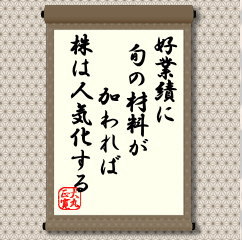 好業績に
旬の材料が
加われば
株は人気化する